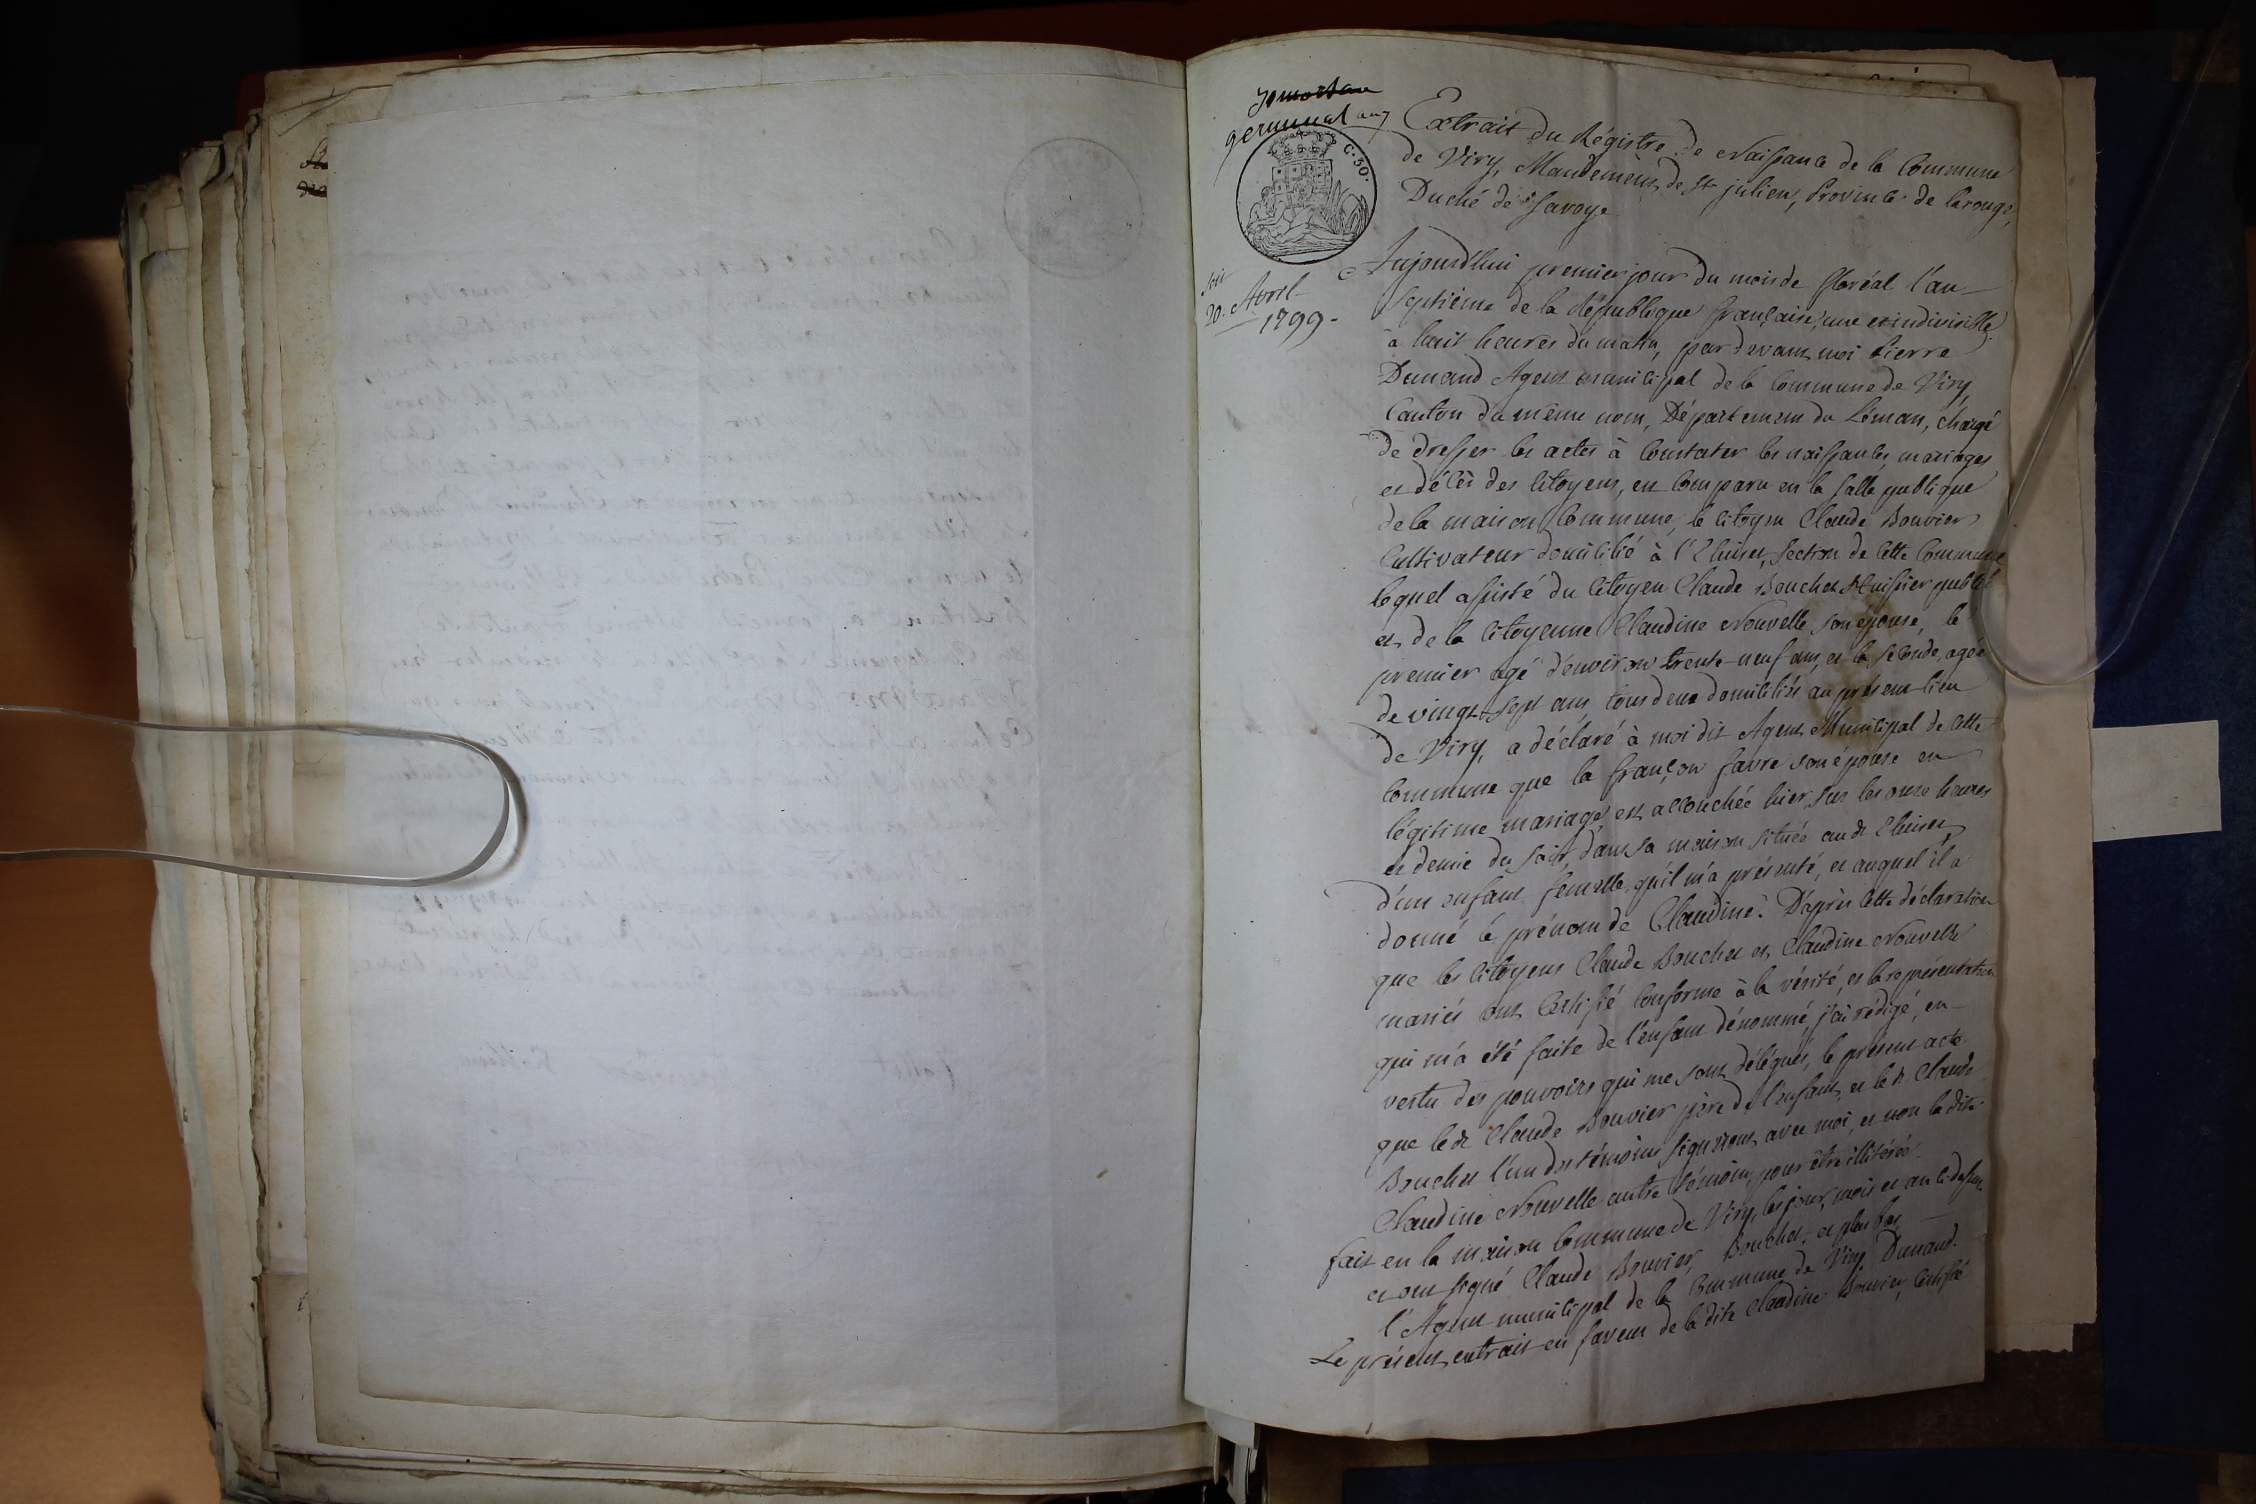 germinal an 7
C. 30.
Soit
20. Avril
1799.
Extrait du Régistre de Naissance de la Commune
de Viry, Mandement de St julien, Province de Carouge,
Duché de Savoye
Aujourd'hui premier jour du mois de floréal l'an
septième de la République française, une et indivisible
à huit heures du matin, par devant moi Pierre
Dunand Agent municipal de la Commune de Viry
Canton du même nom, Département du Léman, chargé
de dresser les actes à Constater les naissances, mariages
et décès des Citoyens, est Comparu en la salle publique
de la maison Commune, le citoyen Claude Bouvier
Cultivateur domicilié à l'Eluiset, section de cette Commune
lequel assisté du Citoyen Claude Bouchet Huissier public
et de la Citoyenne Claudine Nouvelle son épouse, le
premier agé d'environ trente-neuf ans, et la seconde, agée
de vingt-sept ans tous deux domiciliés au présent lieu
de Viry, a déclaré à moi dit Agent Municipal de cette
Commune que la françon favre son épouse en
légitime mariage, est accouchée hier sur les onze heures
et demie du soir, dans sa maison située au dt Eluiset,
d'un enfant femelle qu'il m'a présenté, et auquel il a
donné le prénom de Claudine. D'après cette déclaration
que les Citoyens Claude Bouchet et Claudine Nouvelle
mariés ont Certifié Conforme à la vérité, et la représentation
qui m'a été faite de l'enfant dénommé, j'ai rédigé, en
vertu des pouvoirs qui me sont délégués, le présent acte
que le dt Claude Bouvier père de l'enfant, et le dt Claude
Bouchet l'un des témoins signeront avec moi, et non la dite
Claudine Nouvelle autre témoin, pour être illitérée.
fait en la maison Commune de Viry, les jour, mois et an ci-dessus.
et ont signé Claude Bouvier, Bouchet, et plus bas
l'Agent municipal de la Commune de Viry Dunand.
Le présent extrait en faveur de la dite Claudine Bouvier, Certifié